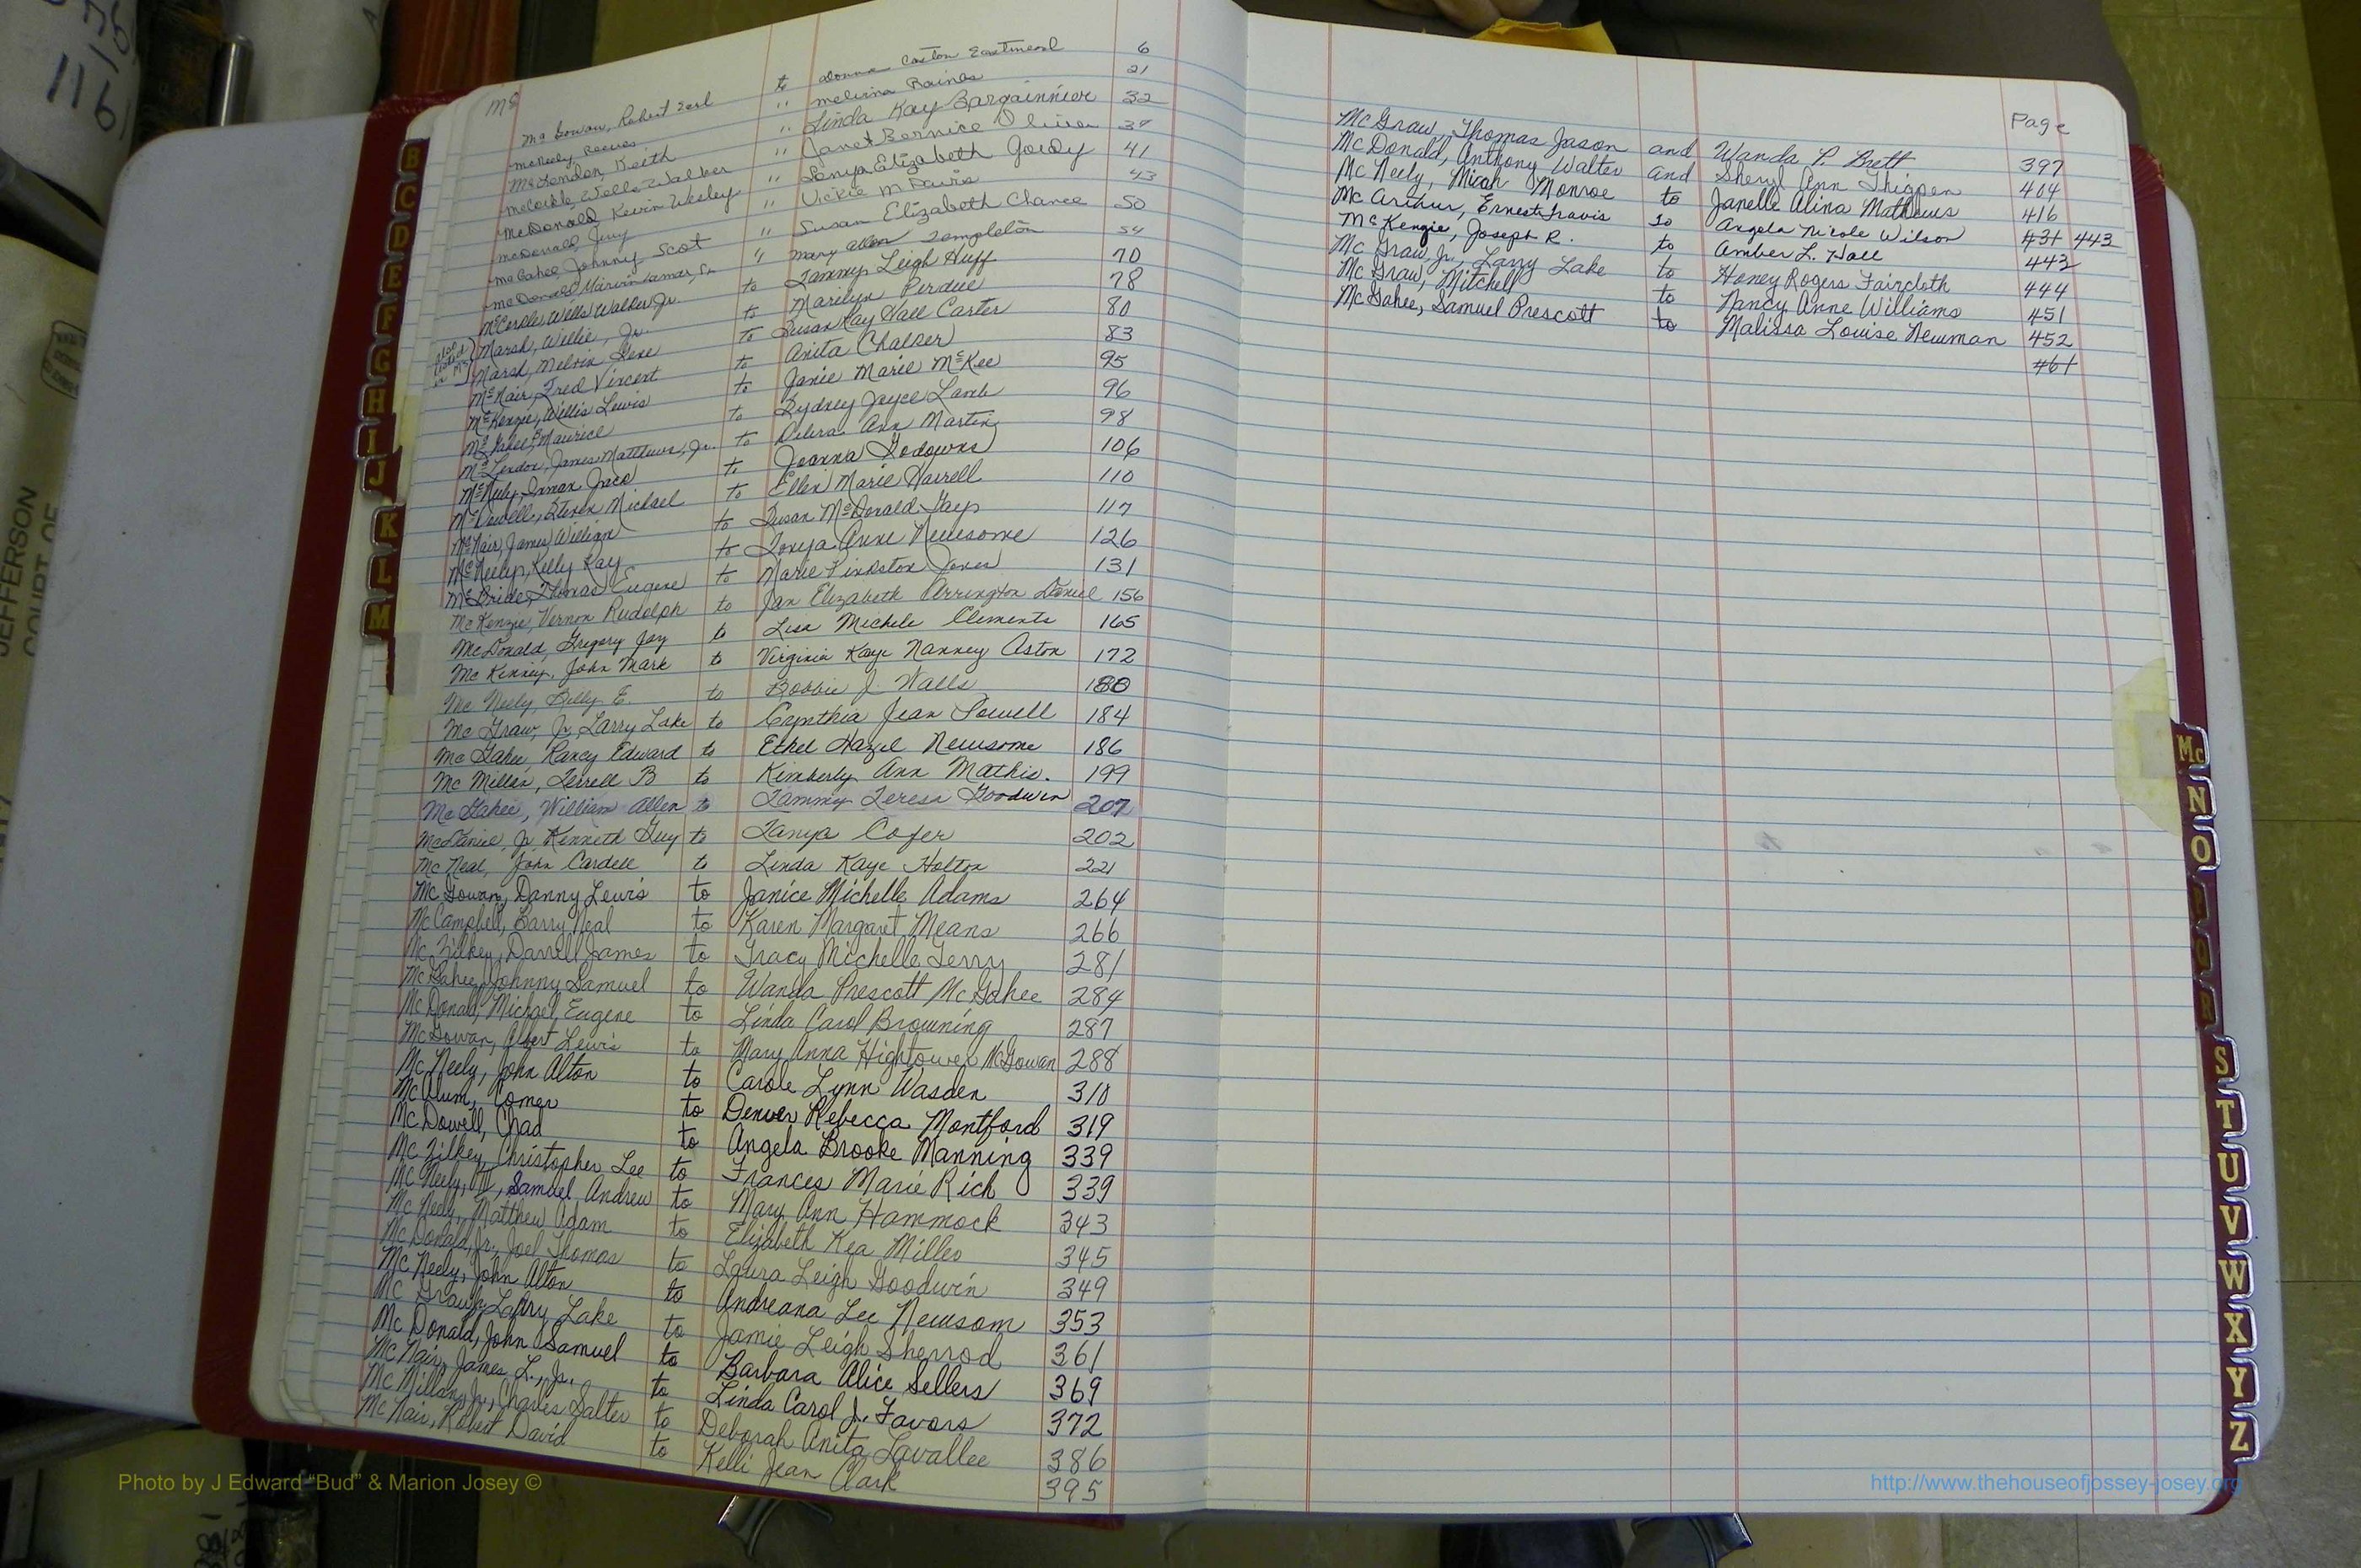 Mc
McGowan, Robert Earl to Donna Caston Eastmead 6
McNeely, Reeves " Melissa Raines 21
McLendon, Keith " Linda Kay Bargainnier 32
McCorkle, Wells Walker " Janet Bernice Oliver 37
McDonald, Kevin Wesley " Sonya Elizabeth Goudy 41
McDonald, Jerry " Vickie M Davis 43
McGahee, Johnny Scot " Susan Elizabeth Chance 50
McDonald, Marvin Lamar, Sr " Mary Allen Templeton 54
McCorkle, Wells Walker Jr. to Tammy Leigh Huff 70
Marsh, Willie, Jr. to Marilyn Perdue 78
Marsh, Melvin Gene to Susan Kay Hall Carter 80
McNair, Fred Vincent to Anita Chalker 83
McKenzie, Willis Lewis to Janie Marie McKee 95
McGahee, Maurice to Sydney Jayce Lamb 96
McLendon, James Matthews, Jr. to Debra Ann Martin 98
McNeely, Inman Jaco to Joanna Godowns 106
McDowell, Steven Michael to Ellen Marie Harrell 110
McNair, James William to Susan McDonald Hays 117
McNeely, Kelly Kay to Tonya Anne Newsome 126
McBride, Thomas Eugene to Marie Pinkston Jones 131
McKenzie, Vernon Rudolph to Jan Elizabeth Arrington Daniel 156
McDonald, Gregory Jay to Lisa Michele Clements 165
McKenney, John Mark to Virginia Kaye Nanney Aston 172
McNeely, Billy E. to Bobbie J. Walls 180
McGraw, Jr, Larry Lake to Cynthia Jean Powell 184
McGahee, Rancy Edward to Ethel Hazel Newsome 186
McMillan, Terrell B to Kimberly Ann Mathis. 199
McGahee, William Allen to Tammy Teresa Goodwin 207
McDaniel, Jr Kenneth Guy to Tanya Cofer 202
McNeal, John Cardell to Linda Kaye Holton 221
McGowan, Danny Lewis to Janice Michelle Adams 264
McCampbell, Barry Neal to Karen Margaret Means 266
McZilkey, Darrell James to Tracy Michelle Terry 281
McGahee, Johnny Samuel to Wanda Prescott McGahee 284
McDonald, Michael Eugene to Linda Carol Browning 287
McGowan, Albert Lewis to Mary Anna Hightower McGowan 288
McNeely, John Alton to Carole Lynn Wasden 310
McCollum, Comer to Denver Rebecca Montford 319
McDowell, Chad to Angela Brooke Manning 339
McZilkey, Christopher Lee to Frances Marie Rich 339
McNeely, IV, Samuel Andrew to Mary Ann Hammock 343
McNeely, Matthew Adam to Elizabeth Kea Miller 345
McDonald, Jr., Joel Thomas to Laura Leigh Goodwin 349
McNeely, John Alton to Andreana Lee Newsom 353
McGraw, Jr Larry Lake to Jamie Leigh Sherrod 361
McDonald, John Samuel to Barbara Alice Sellers 369
McNair, James L., Jr. to Linda Carol J. Favors 372
McMillan, Jr., Charles Salter to Deborah Anita Lavallee 386
McNair, Robert David to Kelli Jean Clark 395
Page
McGraw, Thomas Jason and Wanda P. Brett 397
McDonald, Anthony Walter and Sheryl Ann Thigpen 404
McNeely, Micah Monroe to Janelle Alina Mathews 416
McArthur, Ernest Travis to Angela Nicole Wilson 431 443
McKenzie, Joseph R. to Amber L. Hall 443
McGraw, Jr., Larry Lake to Honey Rogers Faircloth 444
McGraw, Mitchell to Nancy Anne Williams 451
McGahee, Samuel Prescott to Malissa Louise Newman 452
461
B
C
D
E
F
G
H
I
J
K
L
M
Mc
N
O
P
Q
R
S
T
U
V
W
X
Y
Z
JEFFERSON
COURT OF
Photo by J Edward "Bud" & Marion Josey ©
http://www.thehouseofjossey-josey.org